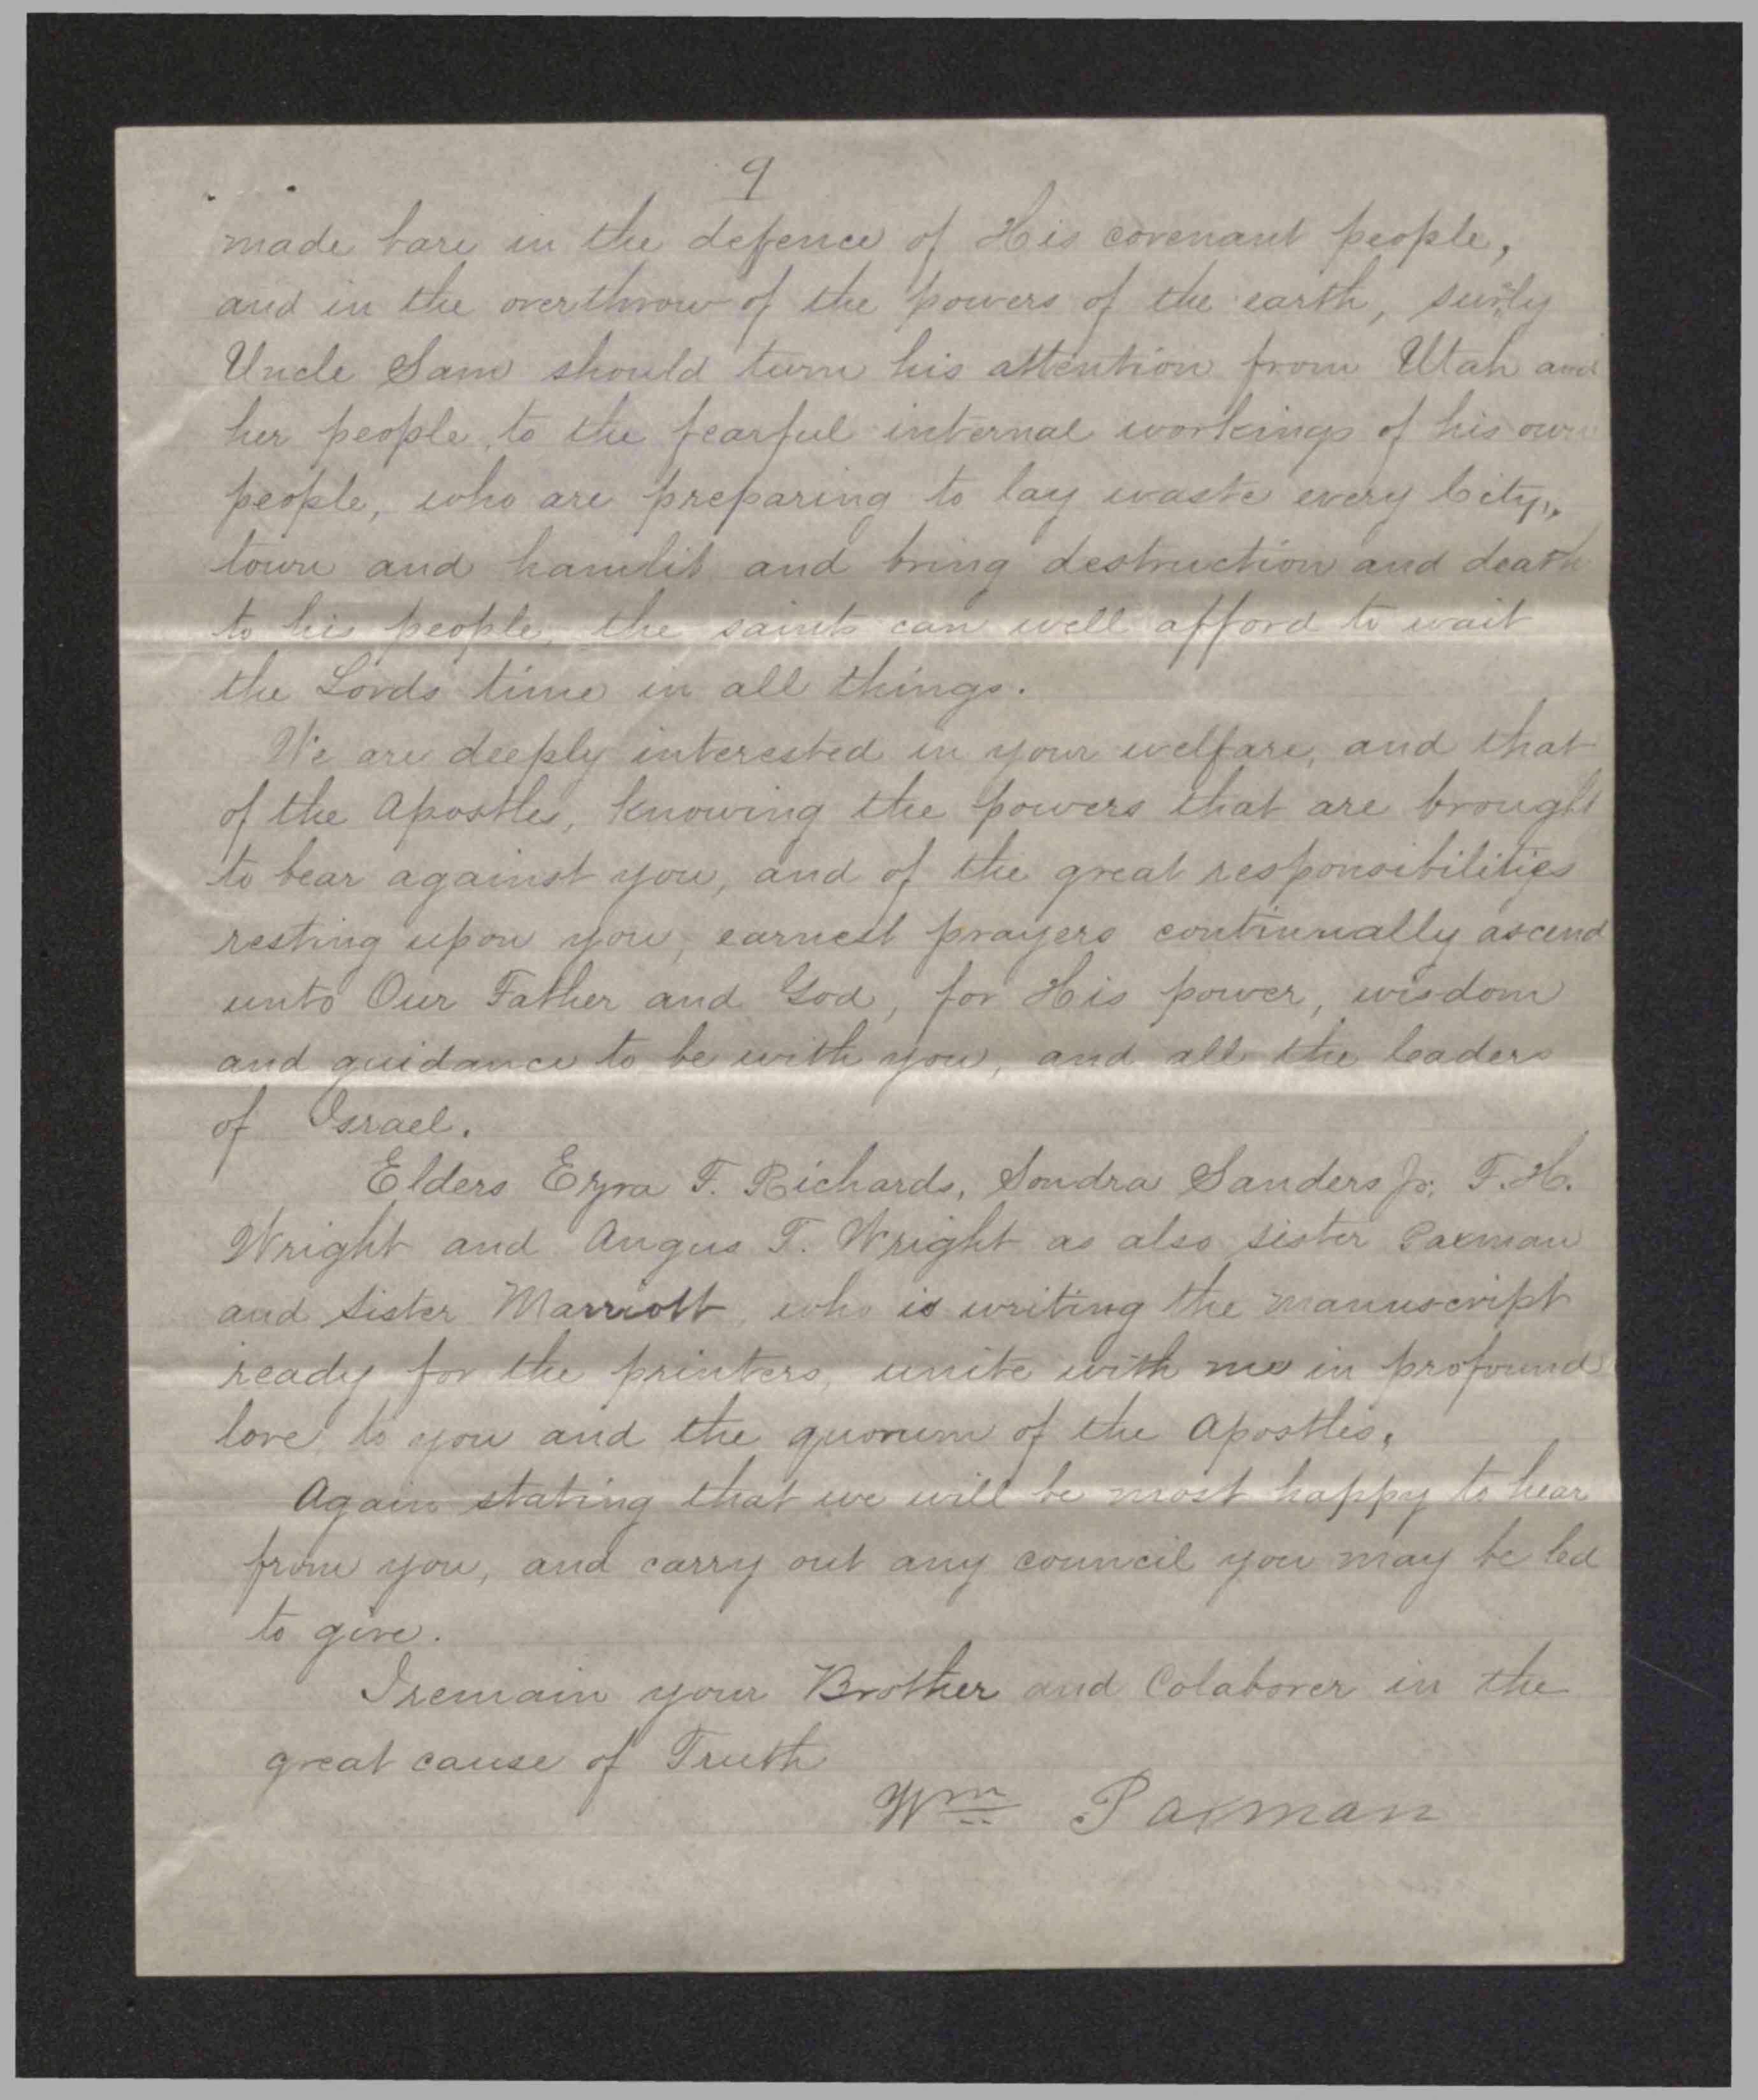 9
made bare in the defence of His covenant people,
and in the overthrow of the powers of the earth, surely
Uncle Sam should turn his attention from Utah and
her people, to the fearful internal workings of his own
people, who are preparing to lay waste every City,,
town and hamlit and bring destruction and death
to his people, the saints can well afford to wait
the Lords time in all things.
We are deeply interested in your welfare, and that
of the Apostles, knowing the powers that are brought
to bear against you, and of the great responsibilities
resting upon you, earnest prayers continually ascend
unto Our Father and God, for His power, wisdom
and guidance to be with you, and all the leaders
of Israel.
Elders Ezra F. Richards, Sondra Sanders Jr. F. H.
Wright and Angus T. Wright as also sister Paxman
and sister Marriott, who is writing the manuscript
ready for the printers, unite with me in profound
love to you and the quorum of the Apostles.
Again stating that we will be most happy to hear
from you, and carry out any council you may be led
to give.
I remain your Brother and Colaborer in the
great cause of Truth
Wm Paxman